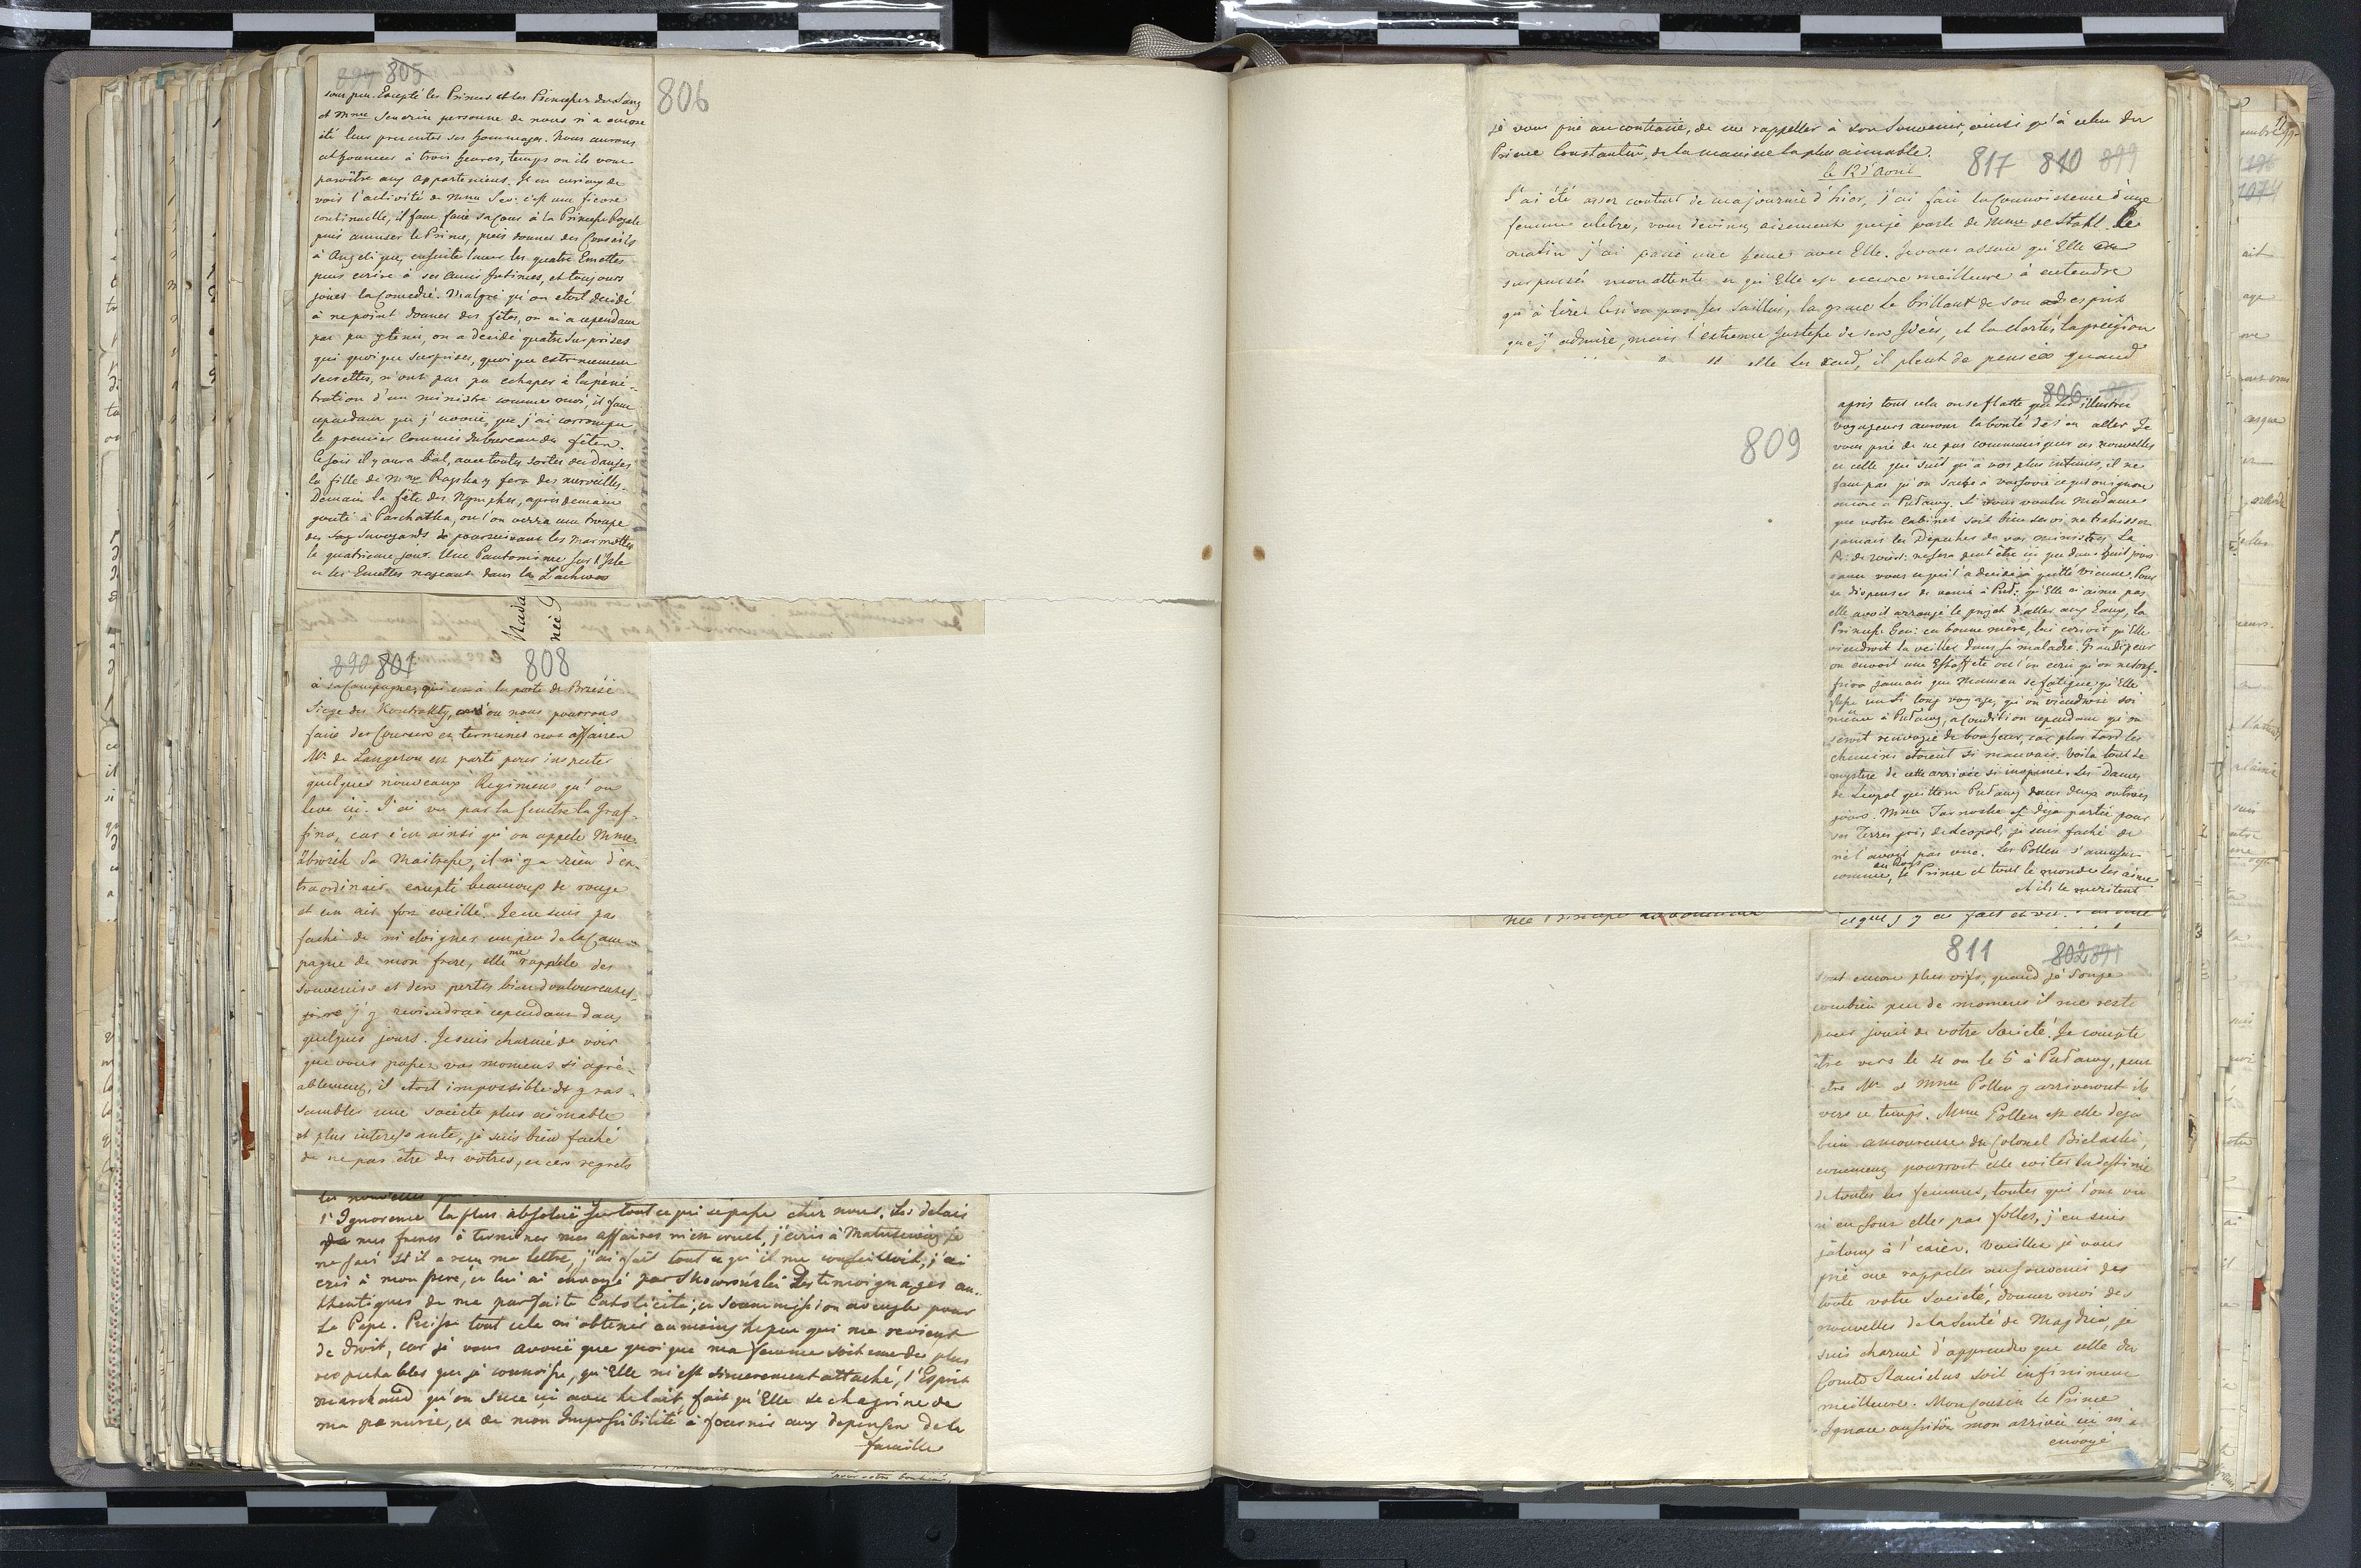 897 805
806
sous peu. Excepté les Princes et les Princesses du Sang
et Mme Severin personne de nous n'a encore
été leur presenter ses hommages. Nous aurons
audience à trois heures, temps où ils vont
paroître aux appartemens. Je suis curieux de
voir l'activité de Mme Sev: c'est une fievre
continuelle, il faut faire sa cour à la Princesse Royale
puis amuser le Prince, puis donner des Conseils
à Angelique, ensuite laver les quatre Emettes
puis ecrire à ses amis Intimes, et toujours
jouer la Comedie. Malgré qu'on étoit decidé
à ne point donner des fêtes, on n'a cependant
pas pu y tenir, on a decidé quatre surprises
qui quoique surprises, quoique extremement
secrettes, n'ont pas pu echaper à la péné-
tration d'un ministre comme moi, il faut
cependant que j'avouë, que j'ai corrompu
le premier Commis du bureau des fêtes.
Ce soir il y aura bal, avec toutes sortes de danses
la fille de Mme Rayska y fera des merveilles.
Demain la fête des Nymphes, après demain
gouté à Parchatka, où l'on verra une troupe
des Savoyards poursuivant les Marmottes
le quatrieme jour. Une Pantomime sur l'Isle
et les Emettes nageant dans la Lachwa
890 801 808
à sa Campagne, qui est à la porte de
siege des Kontrakty, d'où nous pourrons
faire des Courses et terminer nos affaires
Mr de Langeron est parti pour inspecter
quelques nouveaux Regimens qu'on
leve ici. J'ai vu par la fenetre la Graf-
fina, car c'est ainsi qu'on appele Mme
sa Maitresse, il n'y a rien d'ex-
traordinaire excepté beaucoup de rouge
et un air fort eveillé. Je ne suis pas
faché de m'eloigner un peu de la Cam-
pagne de mon frere, elle me rappele des
souvenirs et des pertes bien douloureuses,
j'y reviendrai cependant dans
quelques jours. Je suis charmé de voir
que vous passez vos momens si agré-
ablement, il étoit impossible de ras-
sembler une société plus aimable
et plus interessante, je suis bien faché
de ne pas être des votres, et ces regrets
l'Ignorence la plus absoluë sur tout ce qui se passe chez nous. Les delais
de mes freres à terminer mes affaires m'est cruel, j'ecris à Matusewicz je
ne sais s'il a reçu ma lettre, j'ai fait tout ce qu'il me conseilloit, j'ai
ecris à mon frere, et lui ai envoyé par Skowroński des temoignages au-
thentiques de ma parfaite Catolicité, et soummission aveugle pour
le Pape. Puisse tout cela m'obtenir au moins le peu qui me revient
de droit, car je vous avouë que quoique ma femme soit une des plus
respectables que je connoisse, qu'Elle m'est sincerement attaché, l'Esprit
marchand qu'on suce ici avec le lait, fait qu'Elle se chagrine de
ma penurie, et de mon Impossibilité à fournir aux depenses de la
famille
je vous prie au contraire, de me rappeller à son Souvenir, ainsi qu'à celui du
Prince Constantin, de la maniere la plus aimable.
817 810 899
le 12 d'Avril
J'ai été assez content de ma journée d'hier, j'ai fait la Connoissence d'une
femme celebre, vous devinez aisement que je parle de Mme de Stahl. Le
matin j'ai passé une heure avec Elle. Je vous assure qu'Elle a
surpassé mon attente et qu'Elle est encore meilleure à entendre
qu'à lire. Ce n'est pas les saillies, la grace le brillant de son esprit
que j'admire, mais l'extreme justesse de ses Idées, et la clarté, la precision
elle les rend, il pleut de pensées quand
809
806 895
après tout cela on se flatte que les illustres
voyageurs auront la bonté de s'en aller. Je
vous prie de ne pas communiquer ces nouvelles
et celle qui suit qu'à vos plus intimes, il ne
faut pas qu'on sache à Varsovie ce qu'on ignore
encore à Puławy. Si vous voulez Madame
que votre Cabinet soit bien servi ne trahissez
jamais les Depeches de vos ministres. La
P: de Wirt: ne sera peut être ici que dans huit jours
savez vous ce qui l'a decidé à quitté Vienne. Pour
se dispenser de venir à Puł: qu'Elle n'aime pas
elle avoit arrangé le projet d'aller aux Eaux, la
Princesse Gen: en bonne mère, lui ecrivit qu'Elle
viendroit la veiller dans sa maladie. Grande peur
on envoit une Estaffette où l'on ecrit qu'on ne souf-
frira jamais que Maman se fatigue, qu'Elle
fasse un si long voyage, qu'on viendroit soi
même à Puławy, à condition cependant qu'on
seroit renvoyée de bonheur, car plus tard les
chemins étoient si mauvais. Voila tout le
mystere de cette arrivée si inopinée. Les Dames
de Leopol quittent Puławy dans deux ou trois
jours. Mme Tarnoska est déja partie pour
ses Terres près de Leopol, je suis faché de
ne l'avoir pas vue. Les Potten s'amusent
comme des Rois, le Prince et tout le monde les aime
et ils le meritent
811 802 891
sont encore plus vifs, quand je songe
combien peu de momens il me reste
pour jouir de votre Société. Je compte
être vers le 4 ou le 5 à Puławy, peut
etre Mr et Mme Potten y arriveront ils
vers ce temps. Mme Potten est elle deja
bien amoureuse du Colonel Bielaski,
comment pourroit elle eviter la destinée
de toutes les femmes, toutes qui l'ont vu
n'en sont elles pas folles, j'en suis
jaloux à l'exces. Veuillez je vous
prie me rappeler au souvenir de
toute votre Societé, donnez moi des
nouvelles de la Santé de Mazdzia, je
suis charmé d'apprendre que celle du
Comte Stanislas soit infiniment
meilleure. Mon Cousin le Prince
Ignace aussitôt mon arrivée ici m'a
envoyé